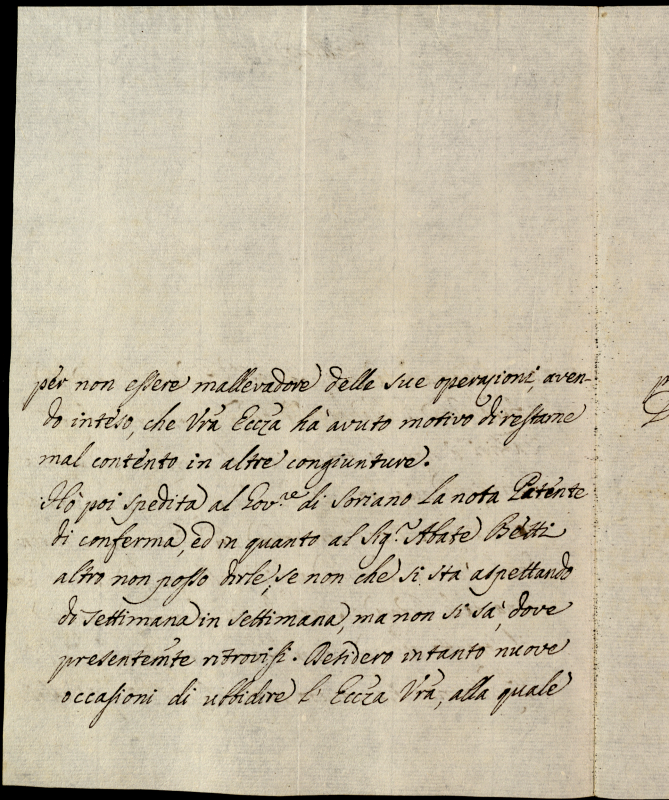 per non essere mallevadore delle sue operazioni, aven-
do inteso, che Vrā Eccza hà avuto motivo di restarne
mal contento in altre congiunture.
Hò poi spedita al Gov.re di Soriano la nota Patente
di conferma, ed in quanto al Sig.r Abate Betti
altro non posso dirle, se non che si stà aspettando
di settimana in settimana, ma non si sà, dove
presentemte ritrovisi. Desidero intanto nuove
occasioni di ubbidire l' Eccza Vrā, alla quale